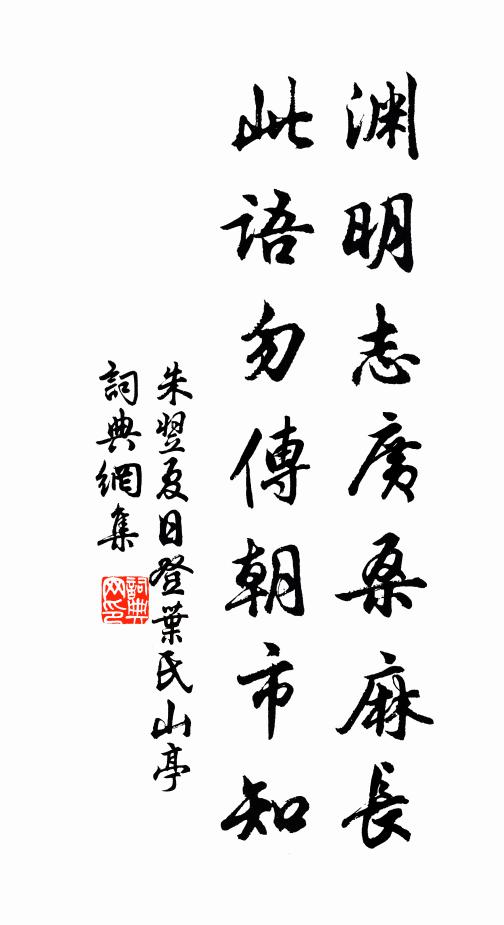 渊明志廣桑麻長
此語勿傳朝市知
朱翌夏日登葉氏山亭
詞典網集
詞典
网印